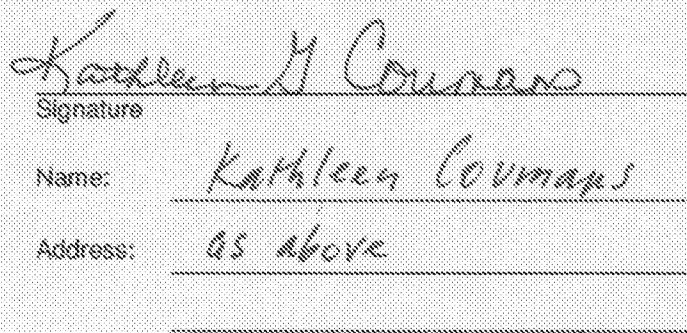 Kathleen G Coumans
Signature
Name: Kathleen Coumans
Address: as above